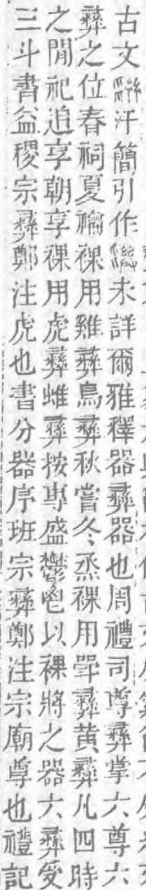 古文𢑱汗簡引作𢑴未詳爾雅釋器彝器也周禮司尊彝掌六尊六
彝之位春祠夏禴祼用雞彝鳥彝秋嘗冬烝祼用斝彝黃彝凡四時
之閒祀追享朝享祼用虎彝蜼彝按專盛鬱鬯以祼將之器六彝受
三斗書益稷宗彝鄭注虎也書分器序班宗彝鄭注宗廟尊也禮記